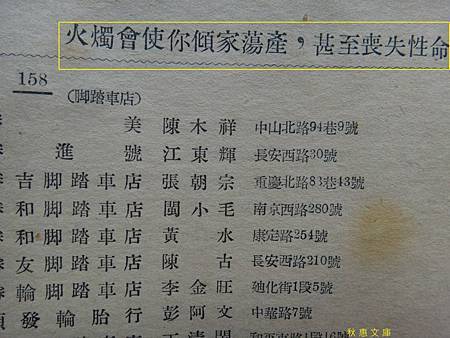 火燭會使你傾家蕩產，甚至喪失性命
158
（脚踏車店）
美 陳木祥 中山北路94巷9號
進號 江東輝 長安西路30號
吉脚踏車店 張朝宗 重慶北路83巷43號
和脚踏車店 閩小毛 南京西路280號
和脚踏車店 黃水 康定路254號
友脚踏車店 陳古 長安西路210號
輪脚踏車店 李金旺 廸化街1段5號
發輪胎行 彭阿文 中華路7號
秋惠文庫